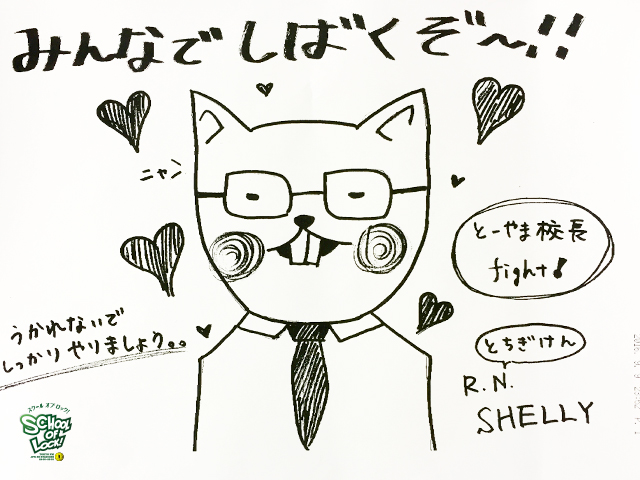 みんなでしばくぞ〜!!
ニャン
とーやま校長
fight!
うかれないで
しっかりやりましょう。。
とちぎけん
R.N.
SHELLY
スクール オブ ロック!
SCHOOL
OF
LOCK!